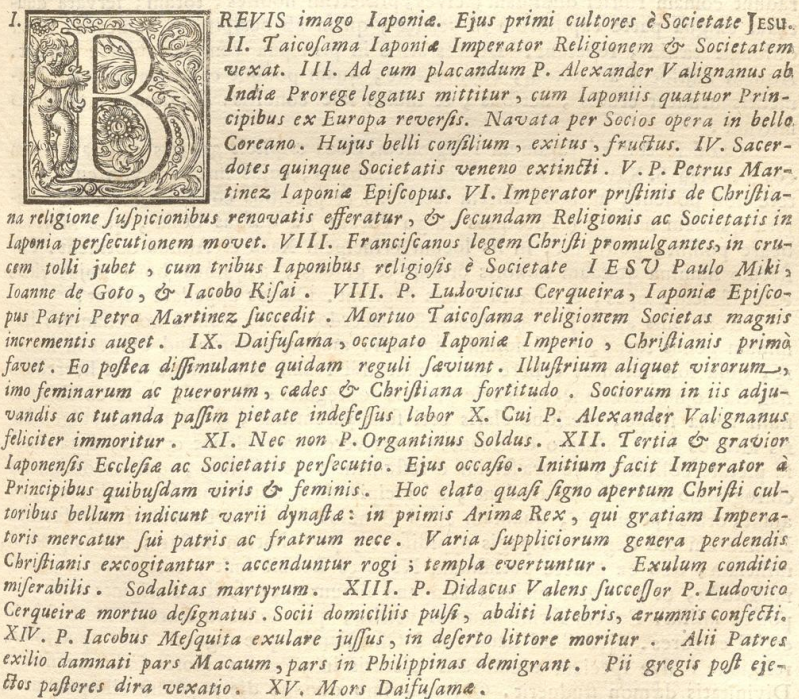 I. BREVIS imago Iaponiæ. Ejus primi cultores è Societate JESU.
II. Taicoſama Iaponiæ Imperator Religionem & Societatem
vexat. III. Ad eum placandum P. Alexander Valignanus ab
Indiæ Prorege legatus mittitur, cum Iaponiis quatuor Prin-
cipibus ex Europa reverſis. Navata per Socios opera in bello
Coreano. Hujus belli conſilium, exitus, fructus. IV. Sacer-
dotes quinque Societatis veneno extincti. V. P. Petrus Mar-
tinez Iaponiæ Epiſcopus. VI. Imperator priſtinis de Chriſtia-
na religione ſuſpicionibus renovatis efferatur, & ſecundam Religionis ac Societatis in
Iaponia perſecutionem movet. VIII. Franciſcanos legem Chriſti promulgantes, in cru-
cem tolli jubet, cum tribus Iaponibus religioſis è Societate IESV Paulo Miki,
Ioanne de Goto, & Iacobo Kiſai. VIII. P. Ludovicus Cerqueira, Iaponiæ Epiſco-
pus Patri Petro Martinez ſuccedit. Mortuo Taicoſama religionem Societas magnis
incrementis auget. IX. Daifuſama, occupato Iaponiæ Imperio, Chriſtianis primò
favet. Eo poſtea diſſimulante quidam reguli ſæviunt. Illuſtrium aliquot virorum,
imo feminarum ac puerorum, cædes & Chriſtiana fortitudo. Sociorum in iis adju-
vandis ac tutanda paſſim pietate indefeſſus labor X. Cui P. Alexander Valignanus
feliciter immoritur. XI. Nec non P. Organtinus Soldus. XII. Tertia & gravior
Iaponenſis Eccleſiæ ac Societatis perſecutio. Ejus occaſio. Initium facit Imperator à
Principibus quibuſdam viris & feminis. Hoc elato quaſi ſigno apertum Chriſti cul-
toribus bellum indicunt varii dynaſtæ: in primis Arimæ Rex, qui gratiam Impera-
toris mercatur ſui patris ac fratrum nece. Varia ſuppliciorum genera perdendis
Chriſtianis excogitantur: accenduntur rogi; templa evertuntur. Exulum conditio
miſerabilis. Sodalitas martyrum. XIII. P. Didacus Valens ſucceſſor P. Ludovico
Cerqueiræ mortuo deſignatus. Socii domiciliis pulſi, abditi latebris, ærumnis confecti.
XIV. P. Iacobus Meſquita exulare juſſus, in deſerto littore moritur. Alii Patres
exilio damnati pars Macaum, pars in Philippinas demigrant. Pii gregis poſt eje-
ctos paſtores dira vexatio. XV. Mors Daifuſamæ.